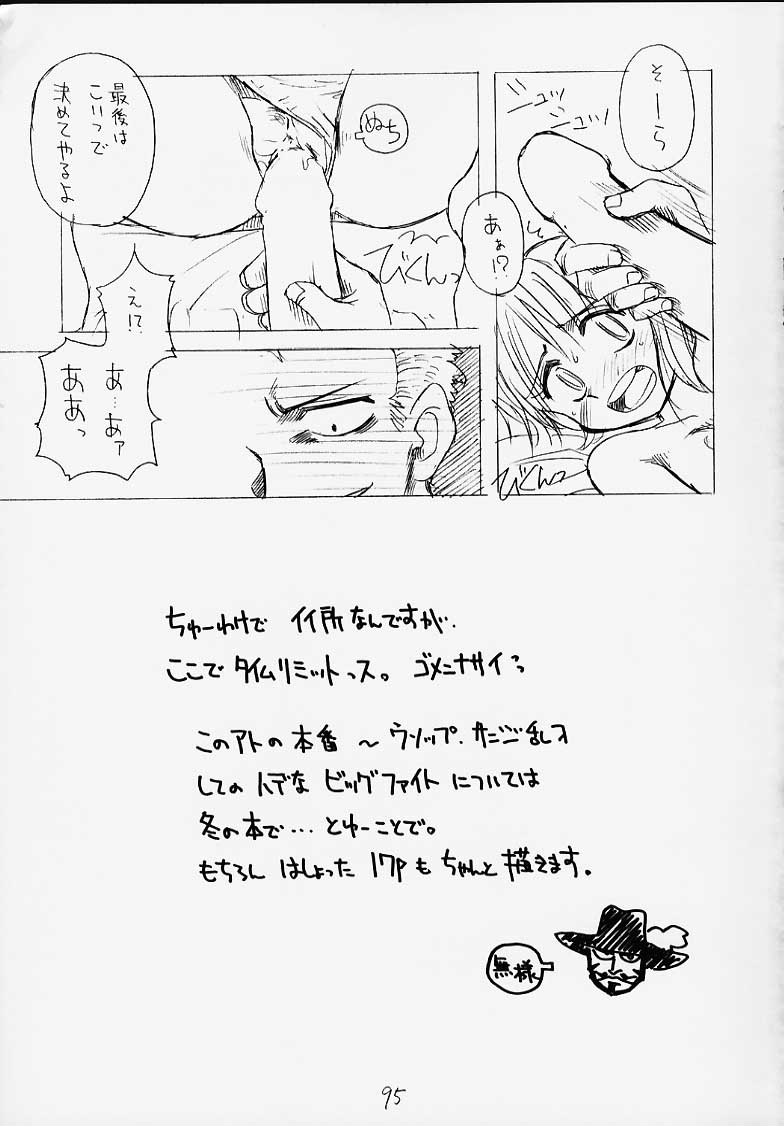 そーら
ニュッ
ニュッ
あぁ!?
びくんっ
最後は
こいつで
決めてやるよ
ぬち
びくんっ
え!?
あ…あァ
ああっ
ちゅーわけで イイ所なんですが、
ここで タイムリミットっス。ゴメンナサイっ
このアトの本番 〜 ウソップ、サンジ乱入
しての ハデな ビッグファイト については
冬の本で… とゆーことで。
もちろん はしょった 17Pも ちゃんと 描きます。
無様
95